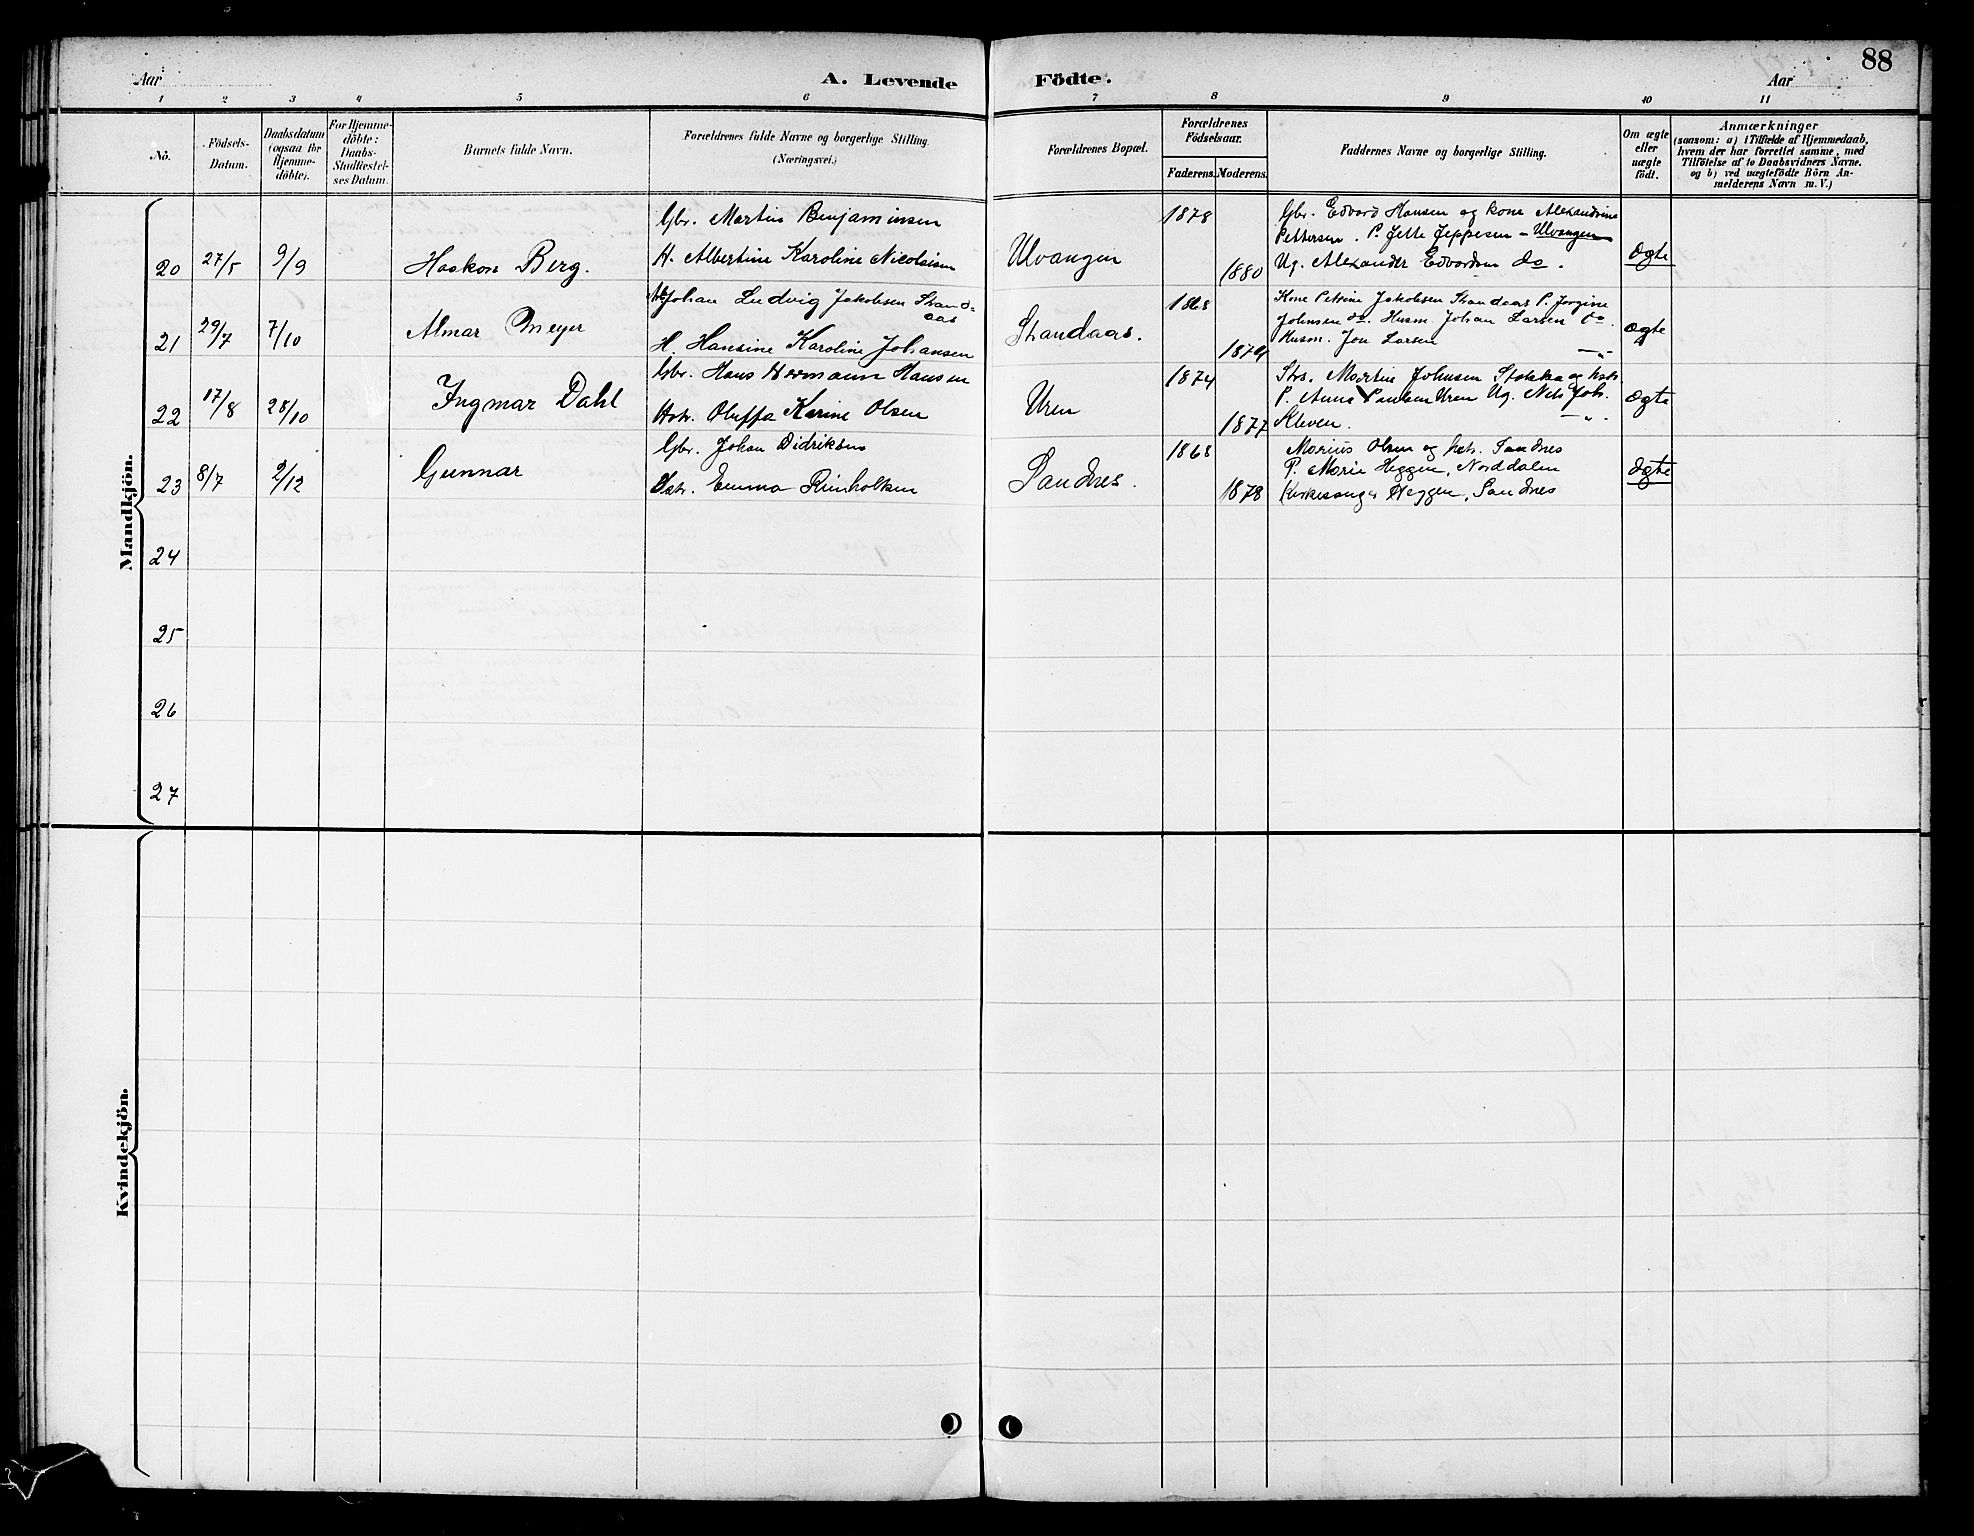 88
Aar
A. Levende Födte.
Aar
1 2 3 4 5 6 7 8 9 10 11
Nö.
Födsels-
Datum.
Daabsdatum
(ogsaa för
Hjemme-
döbte).
For Hjemme-
döbte:
Daabs-
Stadfæstel-
ses Datum.
Barnets fulde Navn.
Forældrenes fulde Navne og borgerlige Stilling.
(Næringsvei.)
Forældrenes Bopæl.
Forældrenes
Födselsaar.
Faderens. Moderens.
Faddernes Navne og borgerlige Stilling.
Om ægte
eller
uægte
födt.
Anmærkninger
(saasom: a) i Tilfælde af Hjemmedaab,
hvem der har forrettet samme, med
Tilföielse af to Daabsvidners Navne,
og b) ved uægtefödte Börn An-
melderens Navn m. V.)
Mandkjön.
20 27/5 9/9 Haakon Berg.
Gbr. Martin Benjaminsen
H. Albertine Karoline Nicolaisen
Ulvangen
1878
1880
Gbr. Edvard Hansen og kone Alexandrine
Pettersen. P. Jette Jeppesen - Ulvangen
Ug. Alexander Edvardsen do.
Ægte
21 29/7 7/10 Almar Meyer
Johan Ludvig Jakobsen Strand-
aas
H. Hansine Karoline Johansen
Strandaas.
1868
1874
Kone Petrine Jakobsen Strandaas P. Jorgine
Johnsen do. Husm. Johan Larsen do.
Husm. Jon Larsen —"—
Ægte
22 17/8 28/10 Ingmar Dahl
Gbr. Hans Hermann Hansen
Hstr. Oluffa Karine Olsen
Uren
1874
1877
Strs. Martin Johnsen Stokka og hstr
P. Anna Paulsen Uren Ug. Nils Joh.
Kleven. —"—
Ægte
23 8/7 2/12 Gunnar
Gbr. Johan Didriksen
Hstr. Emma Reinholtsen
Sandnes.
1868
1878
Marius Olsen og hstr. Sandnes
P. Marie Heggen, Norddalen
Kirkesanger Heggen, Sandnes
Ægte
24
25
26
27
Kvindekjön.